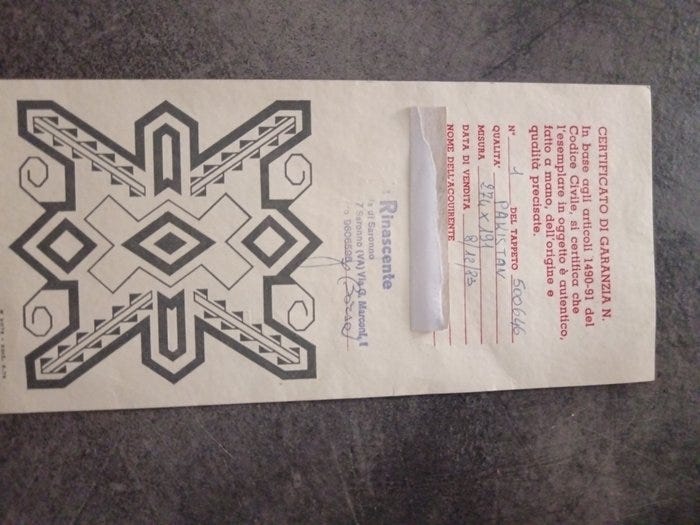 CERTIFICATO DI GARANZIA N.
In base agli articoli 1490-91 del
Codice Civile, si certifica che
l'esemplare in oggetto è autentico,
fatto a mano, dell'origine e
qualità precisate.
N° 1 DEL TAPPETO 500646
QUALITA' PAKISTAN
MISURA 274 x 191
DATA DI VENDITA 8/12/83
NOME DELL'ACQUIRENTE
Rinascente
di Saronno
Saronno (VA) Via G. Marconi, 1